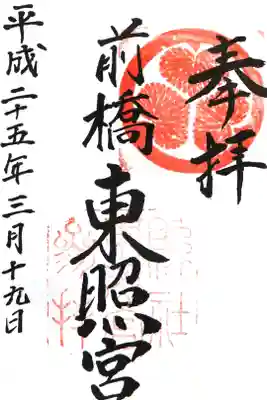 奉拝
前橋東照宮
平成二十五年三月十九日